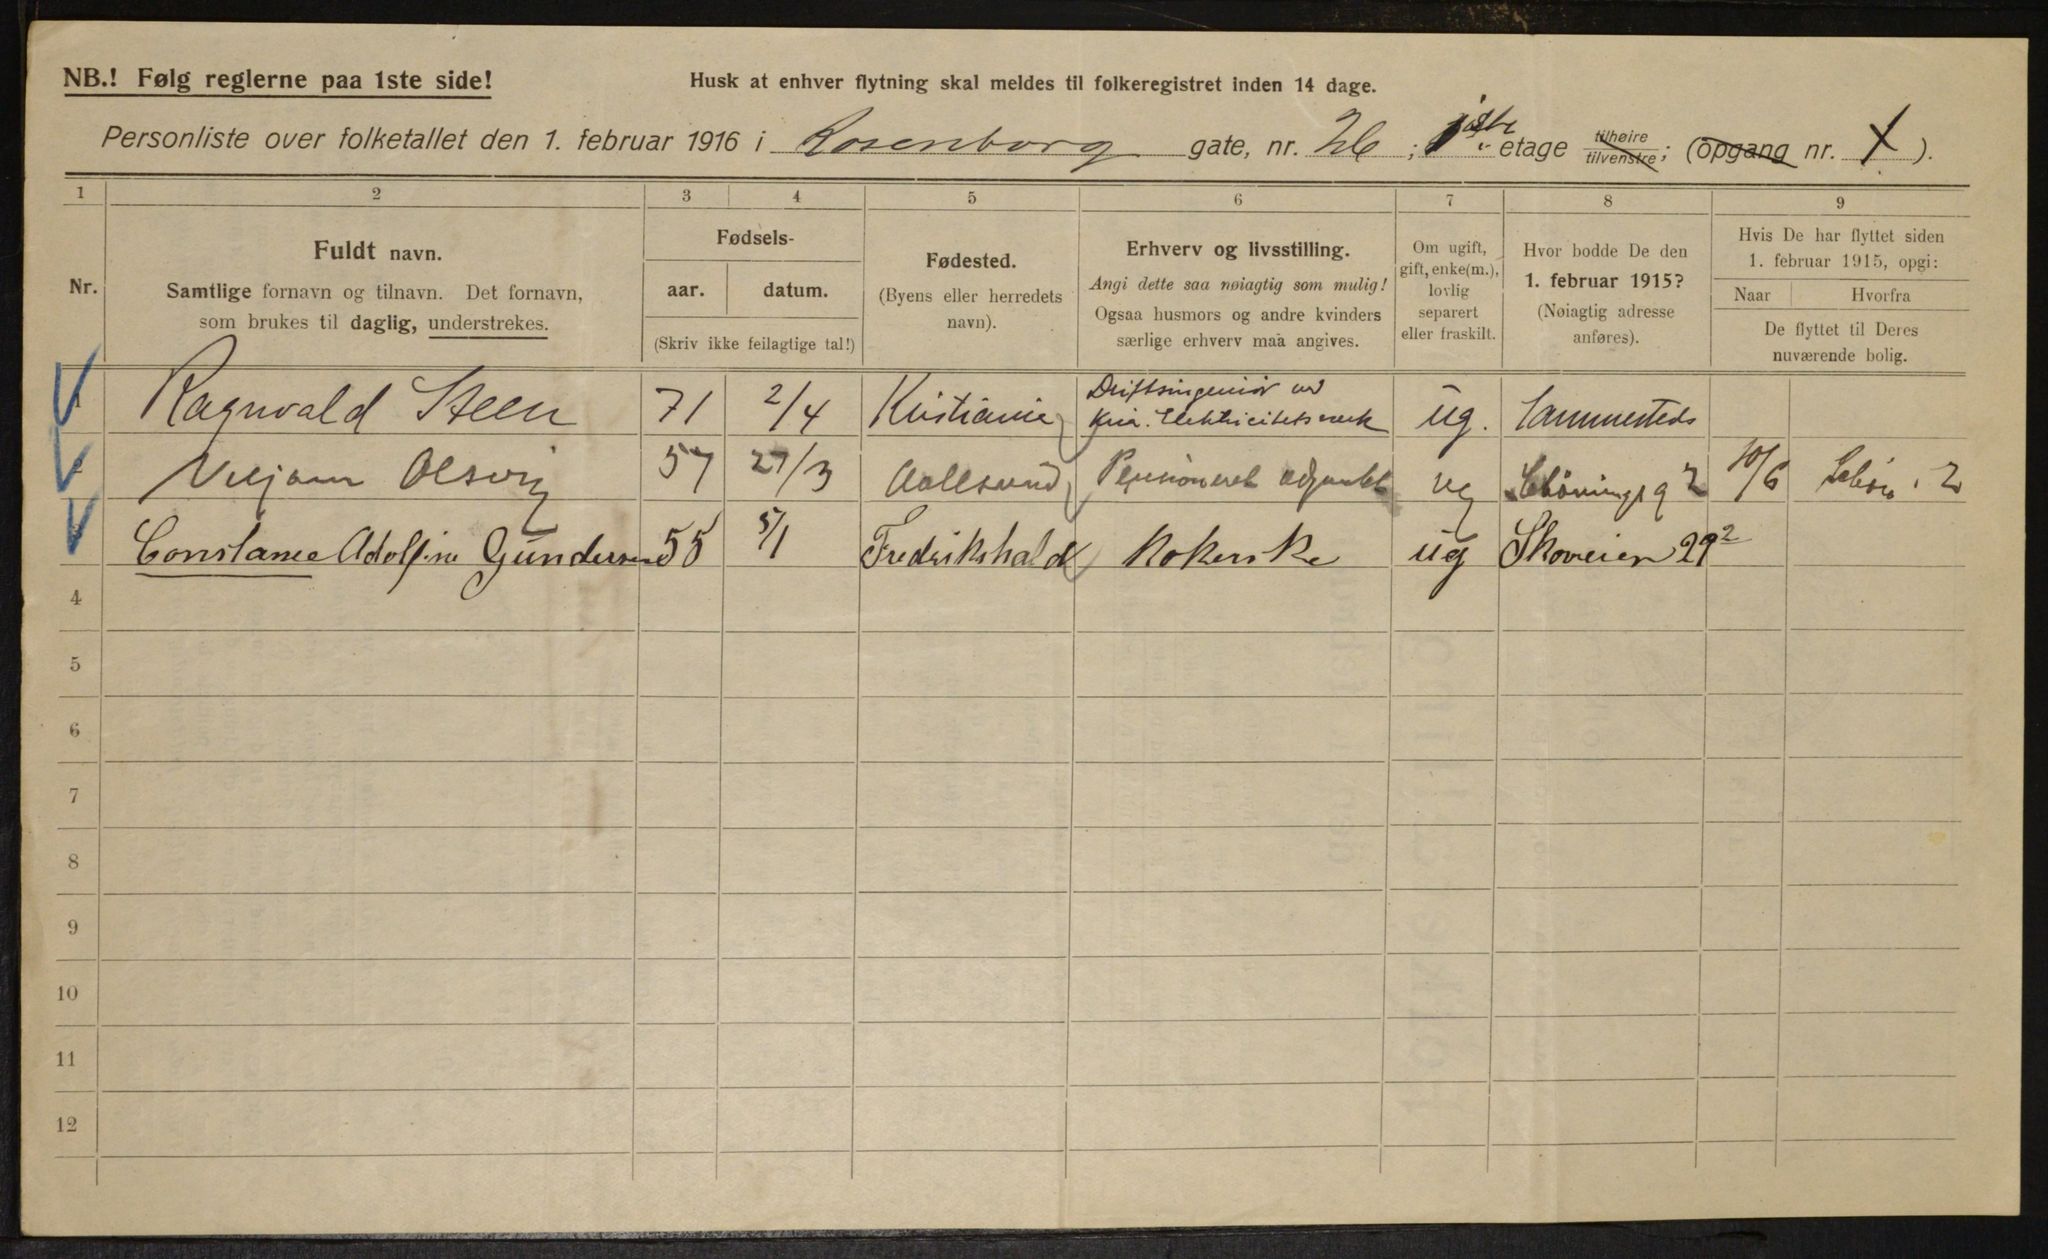 NB.! Følg reglerne paa 1ste side!
Husk at enhver flytning skal meldes til folkeregistret inden 14 dage.
Personliste over folketallet den 1. februar 1916 i Rosenborg gate, nr. 26; 1ste etage tilhøire tilvenstre; (opgang nr. ).
1 2 3 4 5 6 7 8 9
Nr.
Fuldt navn.
Samtlige fornavn og tilnavn. Det fornavn,
som brukes til daglig, understrekes.
Fødsels-
aar. datum.
(Skriv ikke feilagtige tal!)
Fødested.
(Byens eller herredets
navn).
Erhverv og livsstilling.
Angi dette saa nøiagtig som mulig!
Ogsaa husmors og andre kvinders
særlige erhverv maa angives.
Om ugift,
gift, enke(m.),
lovlig
separert
eller fraskilt.
Hvor bodde De den
1. februar 1915?
(Nøiagtig adresse
anføres).
Hvis De har flyttet siden
1. februar 1915, opgi:
Naar Hvorfra
De flyttet til Deres
nuværende bolig.
1 Ragnvald Steen 71 2/4 Kristiania Driftsingeniør ved
Kria. Elektricitetsverk ug. Sammesteds
2 Viljam Olsvig 57 27/3 Aalesund Pensioneret adjunkt ug 2 10/6 2
Constance Adolfine Gundersen 55 5/1 Fredrikshald Kokerske ug Skoveien 29²
4
5
6
7
8
9
10
11
12